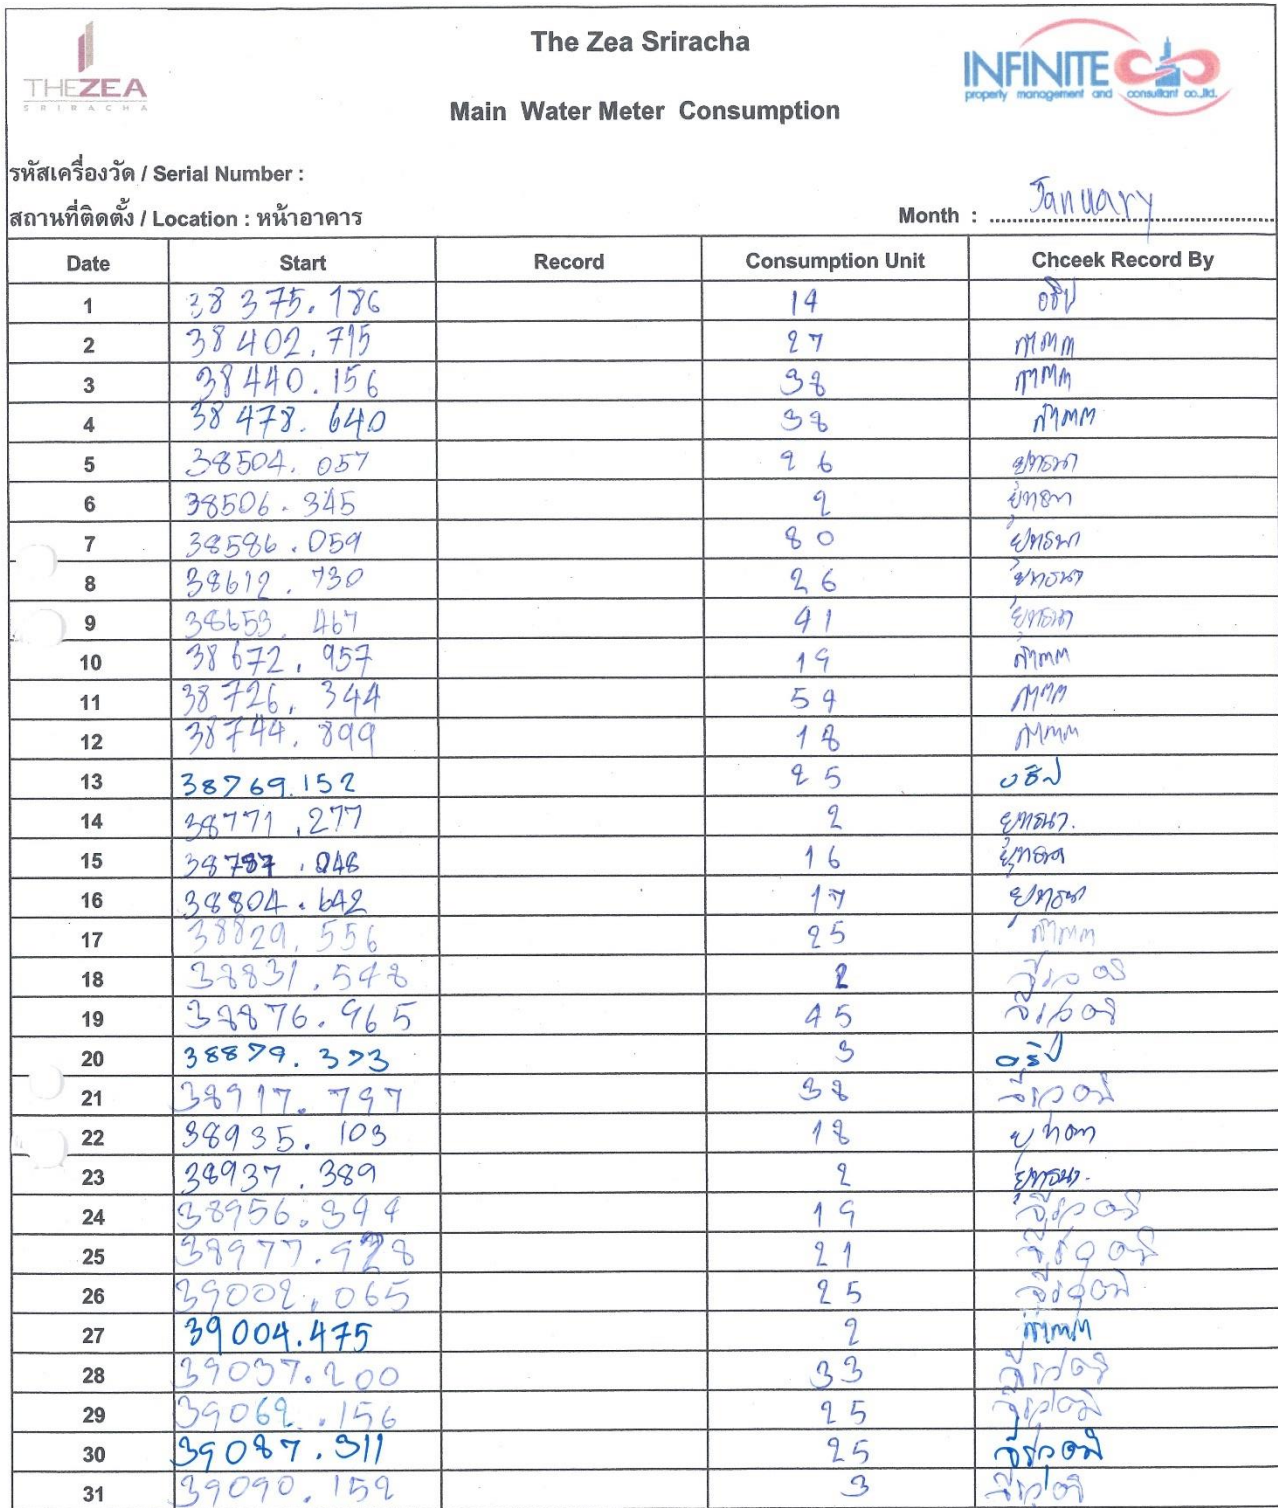 The Zea Sriracha
THEZEA
SRIRACHA
INFINITE
property management and consultant co.,ltd.
Main Water Meter Consumption
รหัสเครื่องวัด / Serial Number :
สถานที่ติดตั้ง / Location : หน้าอาคาร Month : January
Date Start Record Consumption Unit Chceek Record By
1 38375.186 14 อธิป
2 38402.715 27
3 38440.156 38
4 38478.640 38
5 38504.057 26 ยุทธนา
6 38506.345 2 ยุทธนา
7 38586.059 80 ยุทธนา
8 38612.730 26 ยุทธนา
9 38653.467 41 ยุทธนา
10 38672.957 19
11 38726.344 54
12 38744.899 18
13 38769.152 25 อธิป
14 38771.277 2 ยุทธนา.
15 38787.048 16 ยุทธนา
16 38804.642 17 ยุทธนา
17 38829.556 25
18 38831.548 2
19 38876.965 45
20 38879.373 3 อธิป
21 38917.797 38
22 38935.103 18
23 38937.389 2 ยุทธนา.
24 38956.394 19
25 38977.928 21
26 39002.065 25
27 39004.475 2
28 39037.200 33
29 39062.156 25
30 39087.311 25
31 39090.152 3